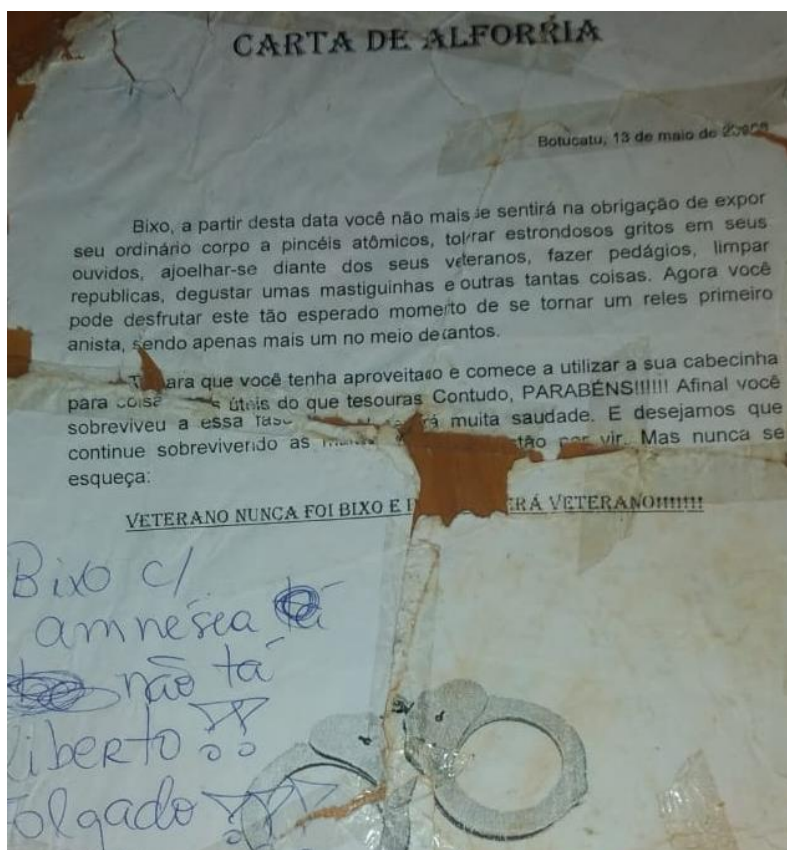 CARTA DE ALFORRIA
Botucatu, 13 de maio de
Bixo, a partir desta data você não mais se sentirá na obrigação de expor
seu ordinário corpo a pincéis atômicos, tolerar estrondosos gritos em seus
ouvidos, ajoelhar-se diante dos seus veteranos, fazer pedágios, limpar
republicas, degustar umas mastiguinhas e outras tantas coisas. Agora você
pode desfrutar este tão esperado momento de se tornar um reles primeiro
anista, sendo apenas mais um no meio de tantos.
que você tenha aproveitado e comece a utilizar a sua cabecinha
para úteis do que tesouras Contudo, PARABÉNS!!!!!! Afinal você
sobreviveu a essa muita saudade. E desejamos que
continue sobrevivendo as por vir. Mas nunca se
esqueça:
VETERANO NUNCA FOI BIXO E VETERANO!!!!!!!!
Bixo c/
amnésea
não tá
liberto !!
folgado !!!